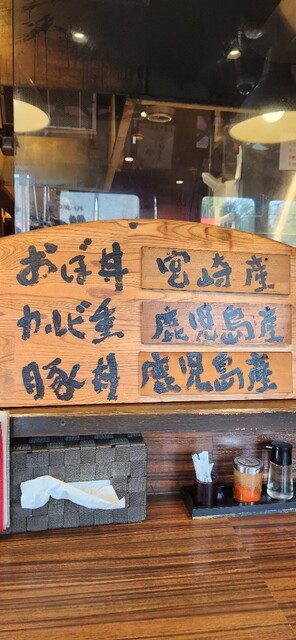 おぼ丼 宮崎産
カルビ重 鹿児島産
豚丼 鹿児島産